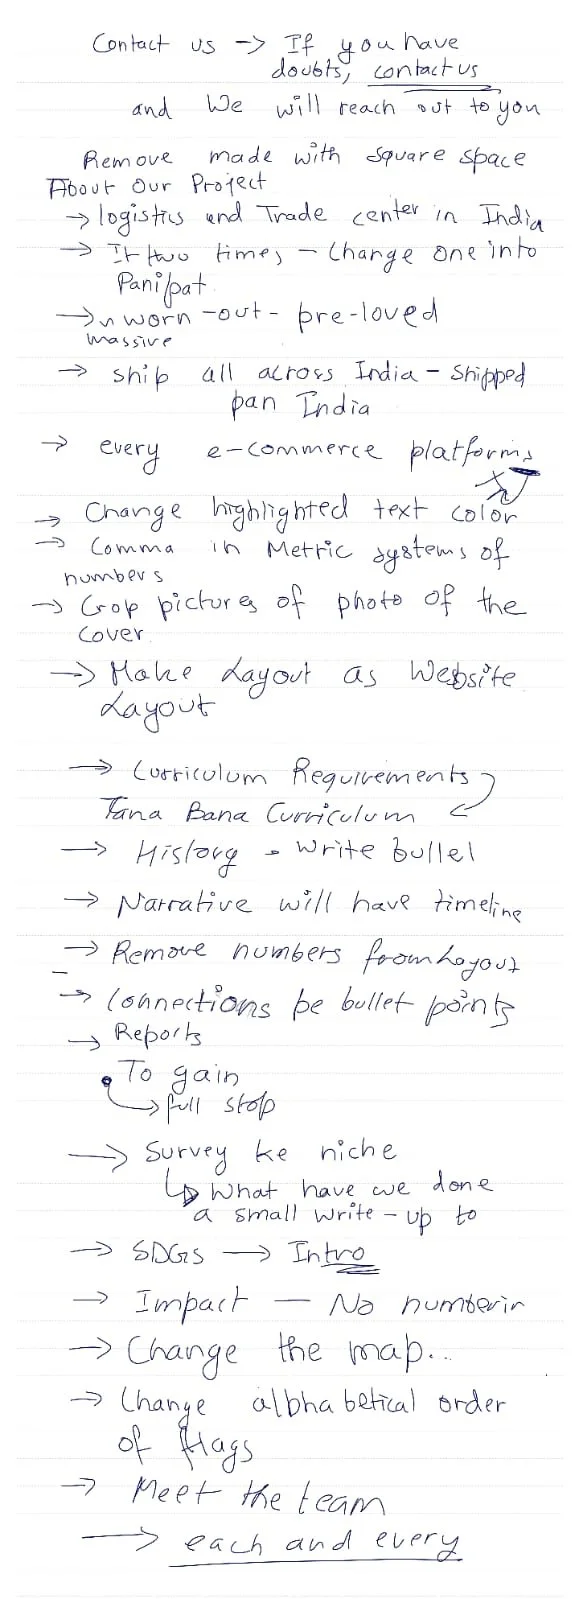 Contact us → If you have
doubts, contact us
and We will reach out to you
Remove made with square space
About Our Project
→ logistics and Trade center in India
→ It two times - Change one into
Panipat
→ worn-out - pre-loved
massive
→ ship all across India - Shipped
pan India
→ every e-commerce platforms
→ Change highlighted text color
→ Comma in Metric systems of
numbers
→ Crop pictures of photo of the
cover
→ Make Layout as Website
Layout
→ Curriculum Requirements
Tana Bana Curriculum
→ History - Write bullet
→ Narrative will have timeline
→ Remove numbers from Layout
→ Connections be bullet points
→ Reports
• To gain
→ full stop
→ Survey ke niche
↳ What have we done
a small write-up to
→ SDGs → Intro
→ Impact - No numberin
→ Change the map...
→ Change alphabetical order
of flags
→ Meet the team
→ each and every